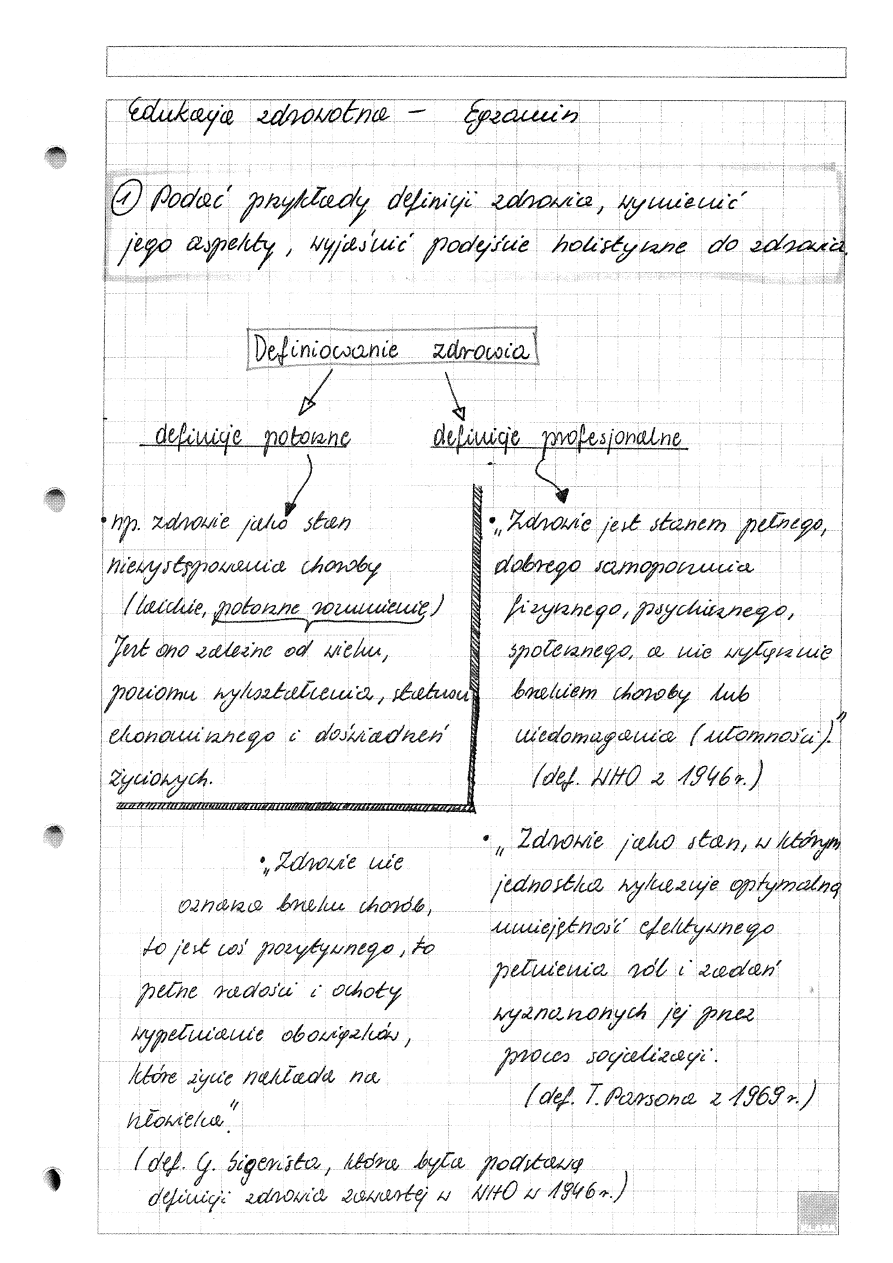 Edukacja zdrowotna – Egzamin
① Podać przykłady definicji zdrowia, wymienić
jego aspekty, wyjaśnić podejście holistyczne do zdrowia.
Definiowanie zdrowia
definicje potoczne
definicje profesjonalne
• np. zdrowie jako stan
niewystępowania choroby
(laickie, potoczne rozumienie)
Jest ono zależne od wieku,
poziomu wykształcenia, statusu
ekonomicznego i doświadczeń
życiowych.
• „Zdrowie jest stanem pełnego,
dobrego samopoczucia
fizycznego, psychicznego,
społecznego, a nie wyłącznie
brakiem choroby lub
niedomagania (ułomności)."
(def. WHO z 1946r.)
• „Zdrowie nie
oznacza braku chorób,
to jest coś pozytywnego, to
pełne radości i ochoty
wypełnianie obowiązków,
które życie nakłada na
człowieka".
(def. G. Sigerista, która była podstawą
definicji zdrowia zawartej w WHO w 1946r.)
• „Zdrowie jako stan, w którym
jednostka wykazuje optymalną
umiejętność efektywnego
pełnienia ról i zadań
wyznaczonych jej przez
proces socjalizacji.
(def. T. Parsona z 1969r.)